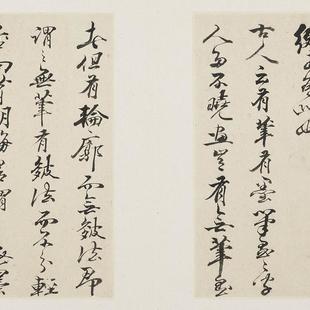 古人云有筆有墨筆墨二字
人多不曉畫豈有無筆墨
者但有輪廓而無皴法即
謂之無筆有皴法而不分輕
向背明晦